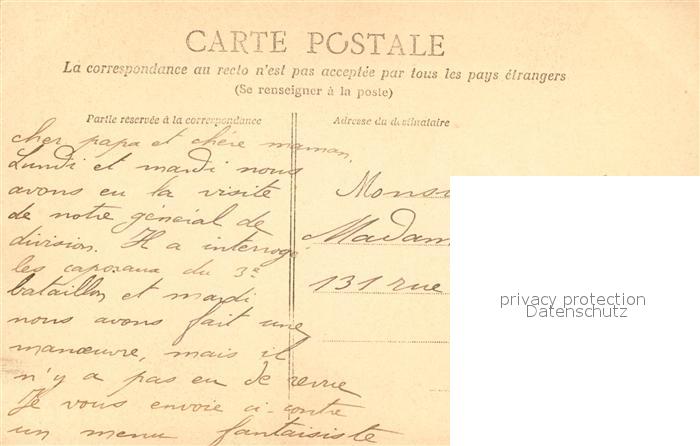 CARTE POSTALE
La correspondance au recto n'est pas acceptée par tous les pays étrangers
(Se renseigner à la poste)
Partie réservée à la correspondance
Adresse du destinataire
cher papa et chère maman,
Lundi et mardi nous
avons eu la visite
de notre général de
division. Il a interrogé
les caporaux du 3e
bataillon et mardi
nous avons fait une
manœuvre, mais il
n'y a pas eu de revue
Je vous envoie ci-contre
un menu fantaisiste
Madam
131 rue
privacy protection
Datenschutz